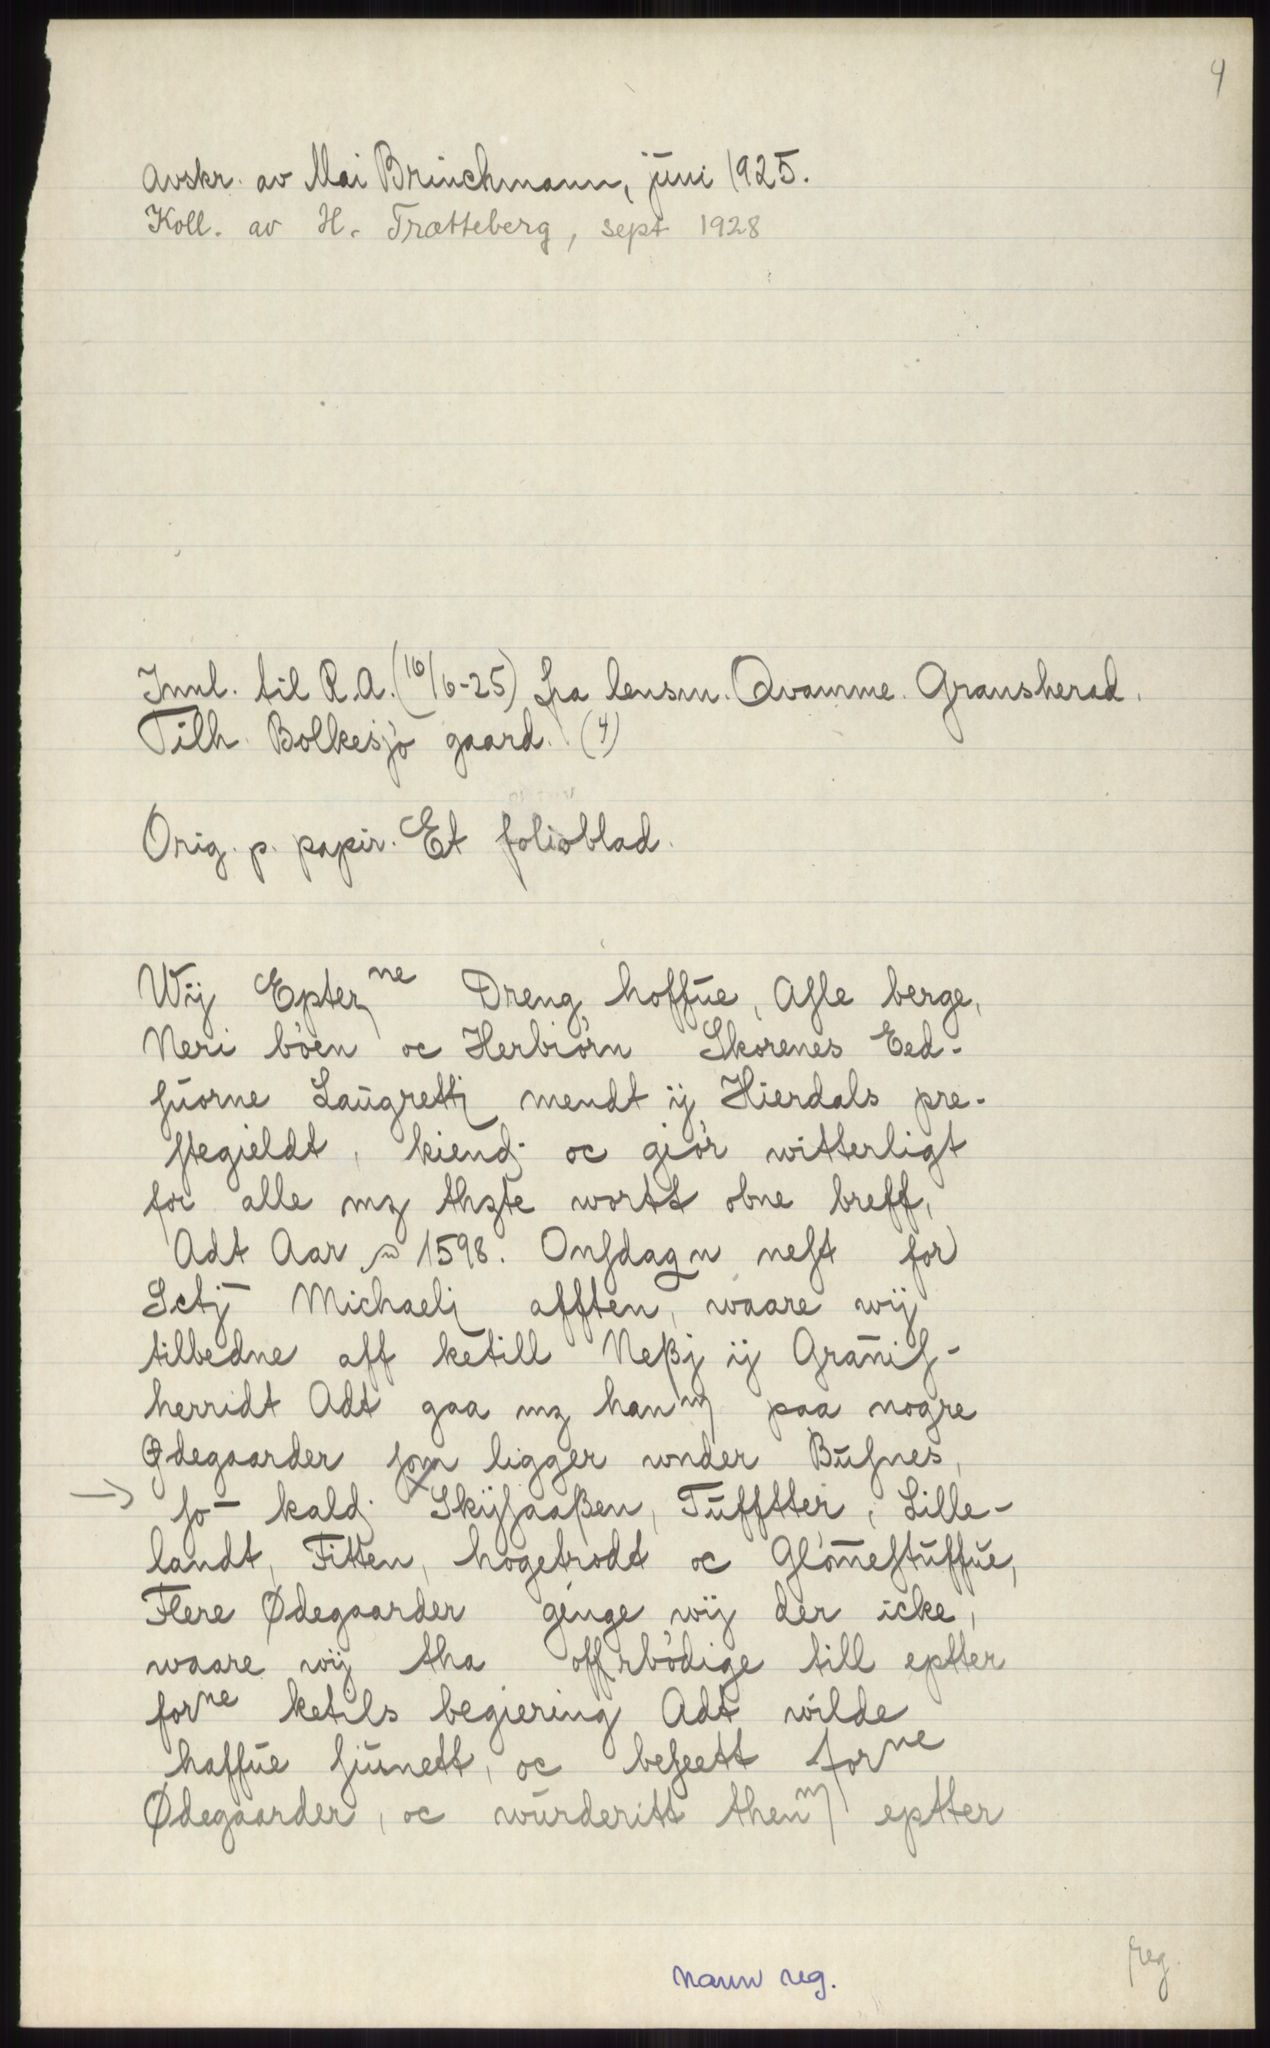 4
Avskr. av Mai Brinchmann, juni 1925.
Koll. av H. Trætteberg, sept 1928
Innl. til R.A. (16/6-25) fra lensm. Qvamme. Gransherad.
Tilh. Bolkesjø gaard. (4)
Orig. p. papir. Et folioblad.
Wij Epterne Dreng hoffue, Asle berge,
Neri bøen oc Herbiørn Skorenes Eed-
suorne Laugrettj mendt ij Hierdals pre-
stegieldt, kiendj oc giør witterligt
for alle mz thzte wortt obne breff,
Adt Aar 1598. Onsdagn nest for
Sctj Michaelj afften, waare wij
tilbedne aff ketill Neßj ij Graniſ-
herridt Adt gaa mz hanm paa nogre
Ødegaarder som ligger wnder Busnes,
so kaldj Skijsaaßen, Tufftter, Lille-
landt, Fitten, hogetrodt oc Glomestuffue,
Flere Ødegaarder ginge wij der icke,
waare wij tha offrbødige till eptter
forne ketils begiering Adt wilde
haffue siunett, oc beseett forne
Ødegaarder, oc wurderitt thenm eptter
navn reg.
reg.